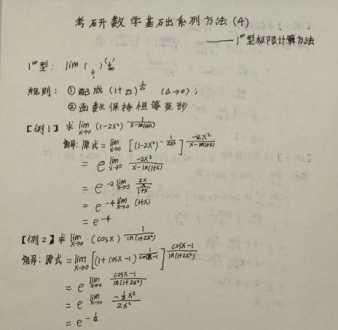 考研数学基础系列方法(4)
—— 1^∞型极限计算方法
1^∞型: lim ( )
规则: ① 配成 (1+□)^{1/□} (□→0);
② 函数保持恒等变形
[例1] 求 lim_{x→0} (1-2x²)^{1/(x-ln(1+x))}
解: 原式 = lim_{x→0} [(1-2x²)^{-1/(2x²)}]^{-2x²/(x-ln(1+x))}
= e^{lim_{x→0} -2x²/(x-ln(1+x))}
= e^{-2 lim_{x→0} 2x/(x/(1+x))}
= e^{-4 lim_{x→0} (1+x)}
= e^{-4}
[例2] 求 lim_{x→0} (cosx)^{1/ln(1+2x²)}
解: 原式 = lim_{x→0} [(1+cosx-1)^{1/(cosx-1)}]^{(cosx-1)/ln(1+2x²)}
= e^{lim_{x→0} (cosx-1)/ln(1+2x²)}
= e^{lim_{x→0} (-½x²)/(2x²)}
= e^{-¼}